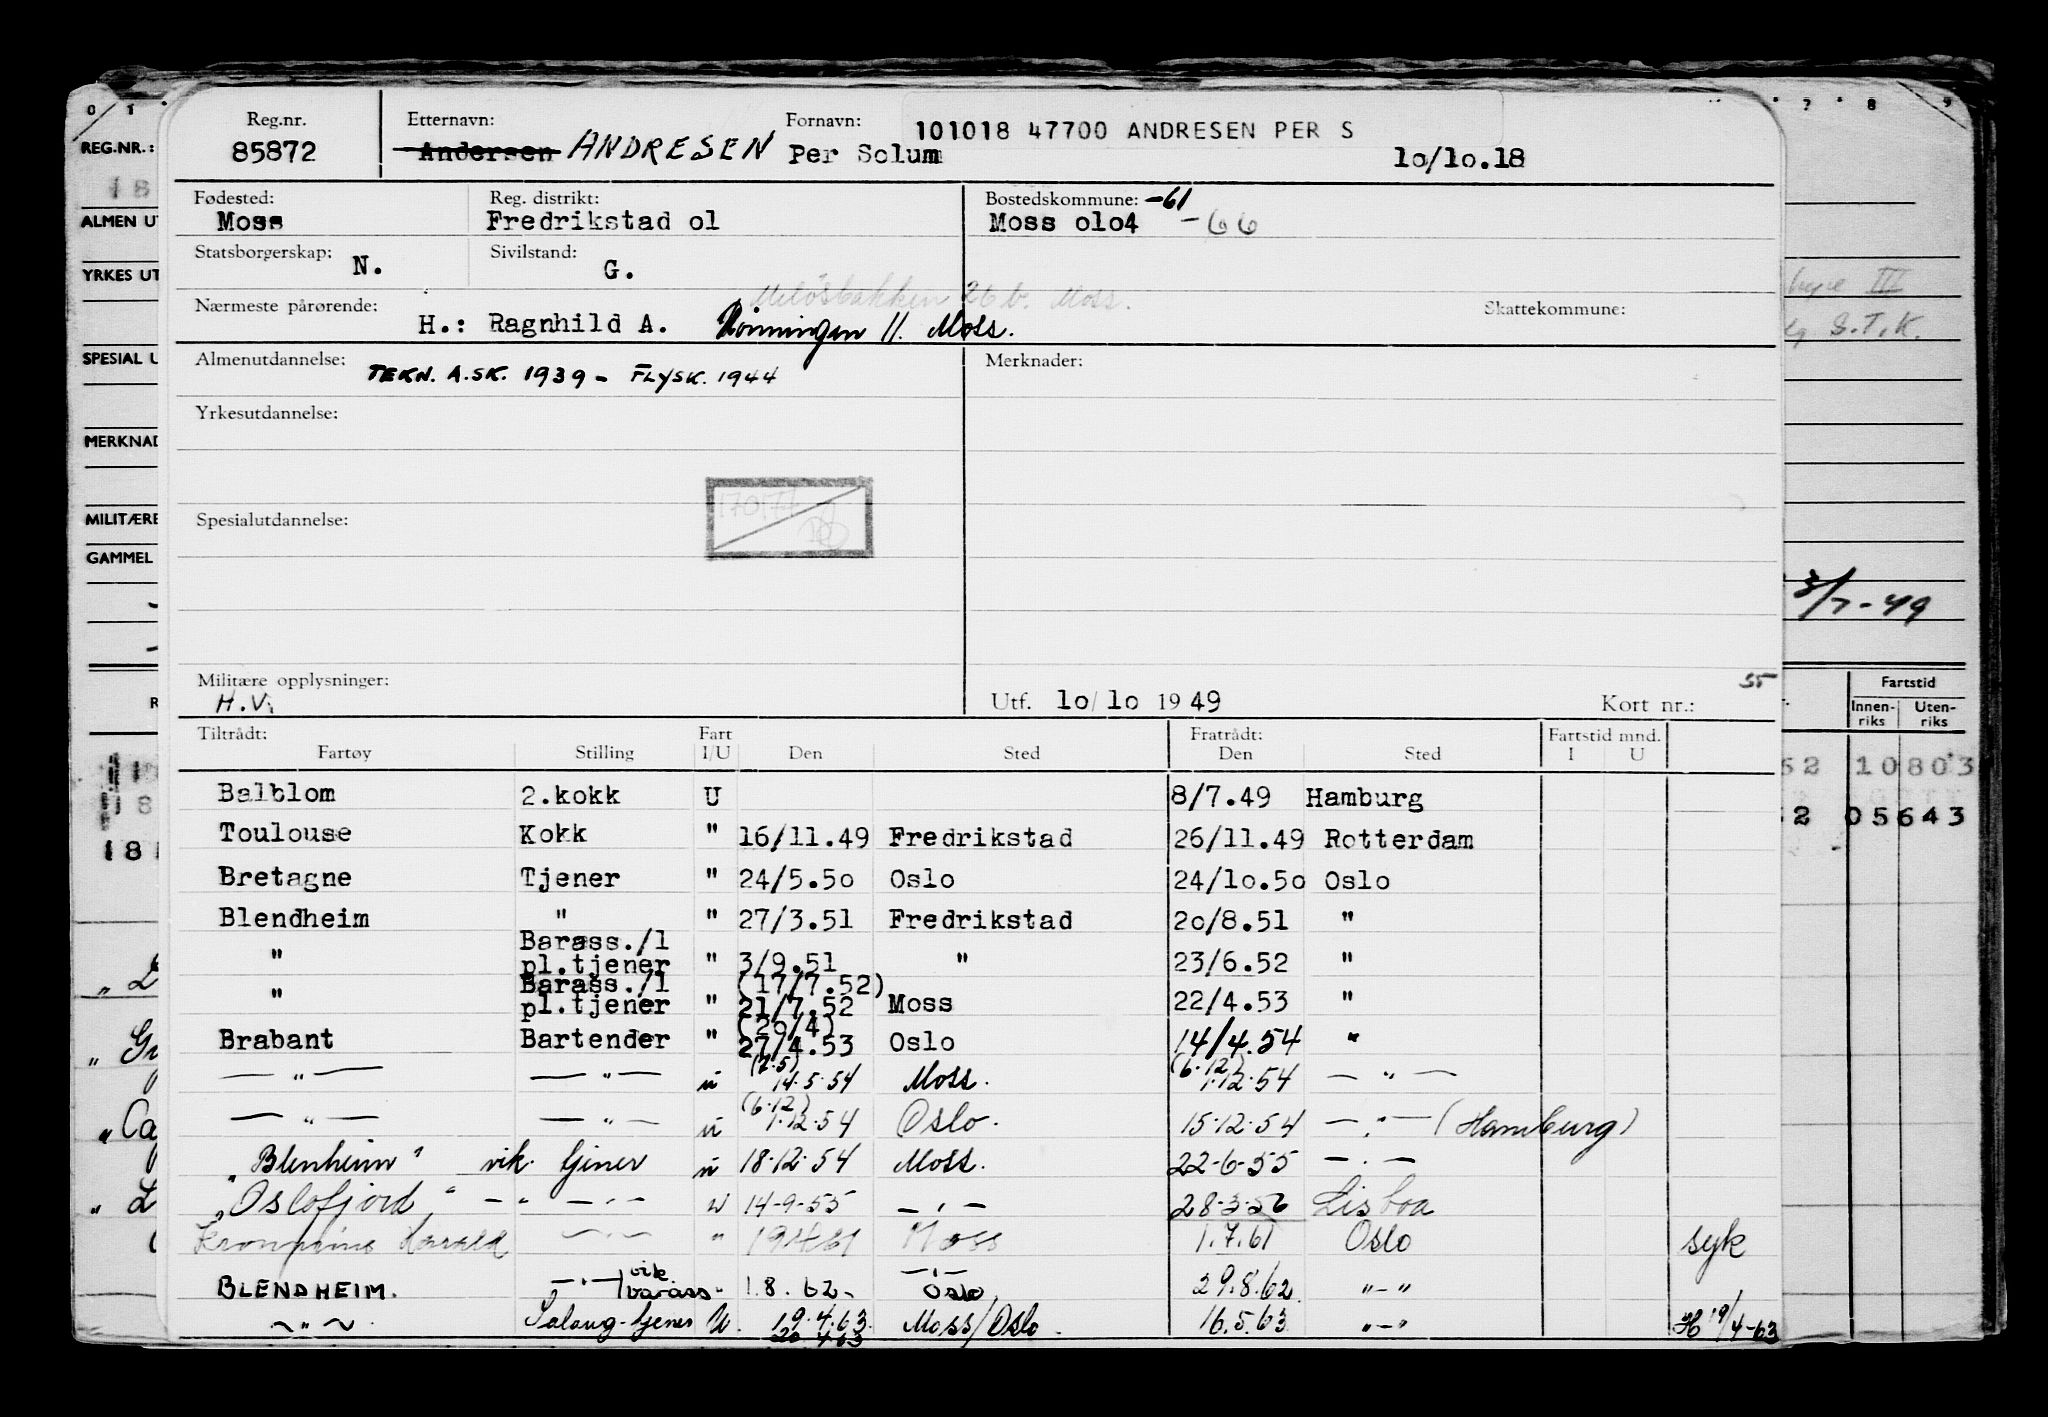 0 1 7 8 9
REG.NR.:
18
ALMEN UT
YRKES UT
SPESIAL U
MERKNAD
MILITÆRE
GAMMEL
Reg.nr. Etternavn: Fornavn: 101018 47700 ANDRESEN PER S
85872 Andersen ANDRESEN Per Solum 10/10.18
Fødested: Reg. distrikt: Bostedskommune: -61
Moss Fredrikstad 01 Moss 0104 -66
Statsborgerskap: N. Sivilstand: G.
Meløsbakken 26 b. Moss.
Nærmeste pårørende: H.: Ragnhild A. Rønningen 11. Moss. Skattekommune:
Almenutdannelse: TEKN. A.SK. 1939 - FLYSK. 1944 Merknader:
Yrkesutdannelse:
Spesialutdannelse:
Militære opplysninger: H.V. Utf. 10/10 1949 Kort nr.: 55
III
S.T.K.
3/7-49
Fartstid
Innen-riks Uten-riks
52 10803
52 05643
Tiltrådt: Fart Fratrådt: Fartstid mnd.
Fartøy Stilling I/U Den Sted Den Sted I U
Balblom 2.kokk U 8/7.49 Hamburg
Toulouse Kokk " 16/11.49 Fredrikstad 26/11.49 Rotterdam
Bretagne Tjener " 24/5.50 Oslo 24/10.50 Oslo
Blendheim " " 27/3.51 Fredrikstad 20/8.51 "
" Barass./l pl.tjener " 3/9.51 " 23/6.52 "
" Barass./l pl.tjener " (17/7.52) 21/7.52 Moss 22/4.53 "
Brabant Bartender " (20/4) 27/4.53 Oslo 14/4.54 "
— " — — " — u (7.5) 14.5.54 Moss. (6.12) 1.12.54 — " —
— " — — " — u (6.12) 1.12.54 Oslo. 15.12.54 — " — (Hamburg)
"Blenheim" vik. tjener u 18.12.54 Moss. 22-6-55 — " —
"Oslofjord" — " — — " — u 14-9-55 — " — 28-3-56 Lisboa
Kronprins Harald — " — " 19461 Moss 1.7.61 Oslo syk
BLENDHEIM. — " — / vik. barass " 1.8.62 - — " — Oslo 29.8.62 " — "
~ " ~ Salong-tjener U. 19.4.63. 20 4 63 Moss/Oslo. 16.5.63 " — " H 19/4-63